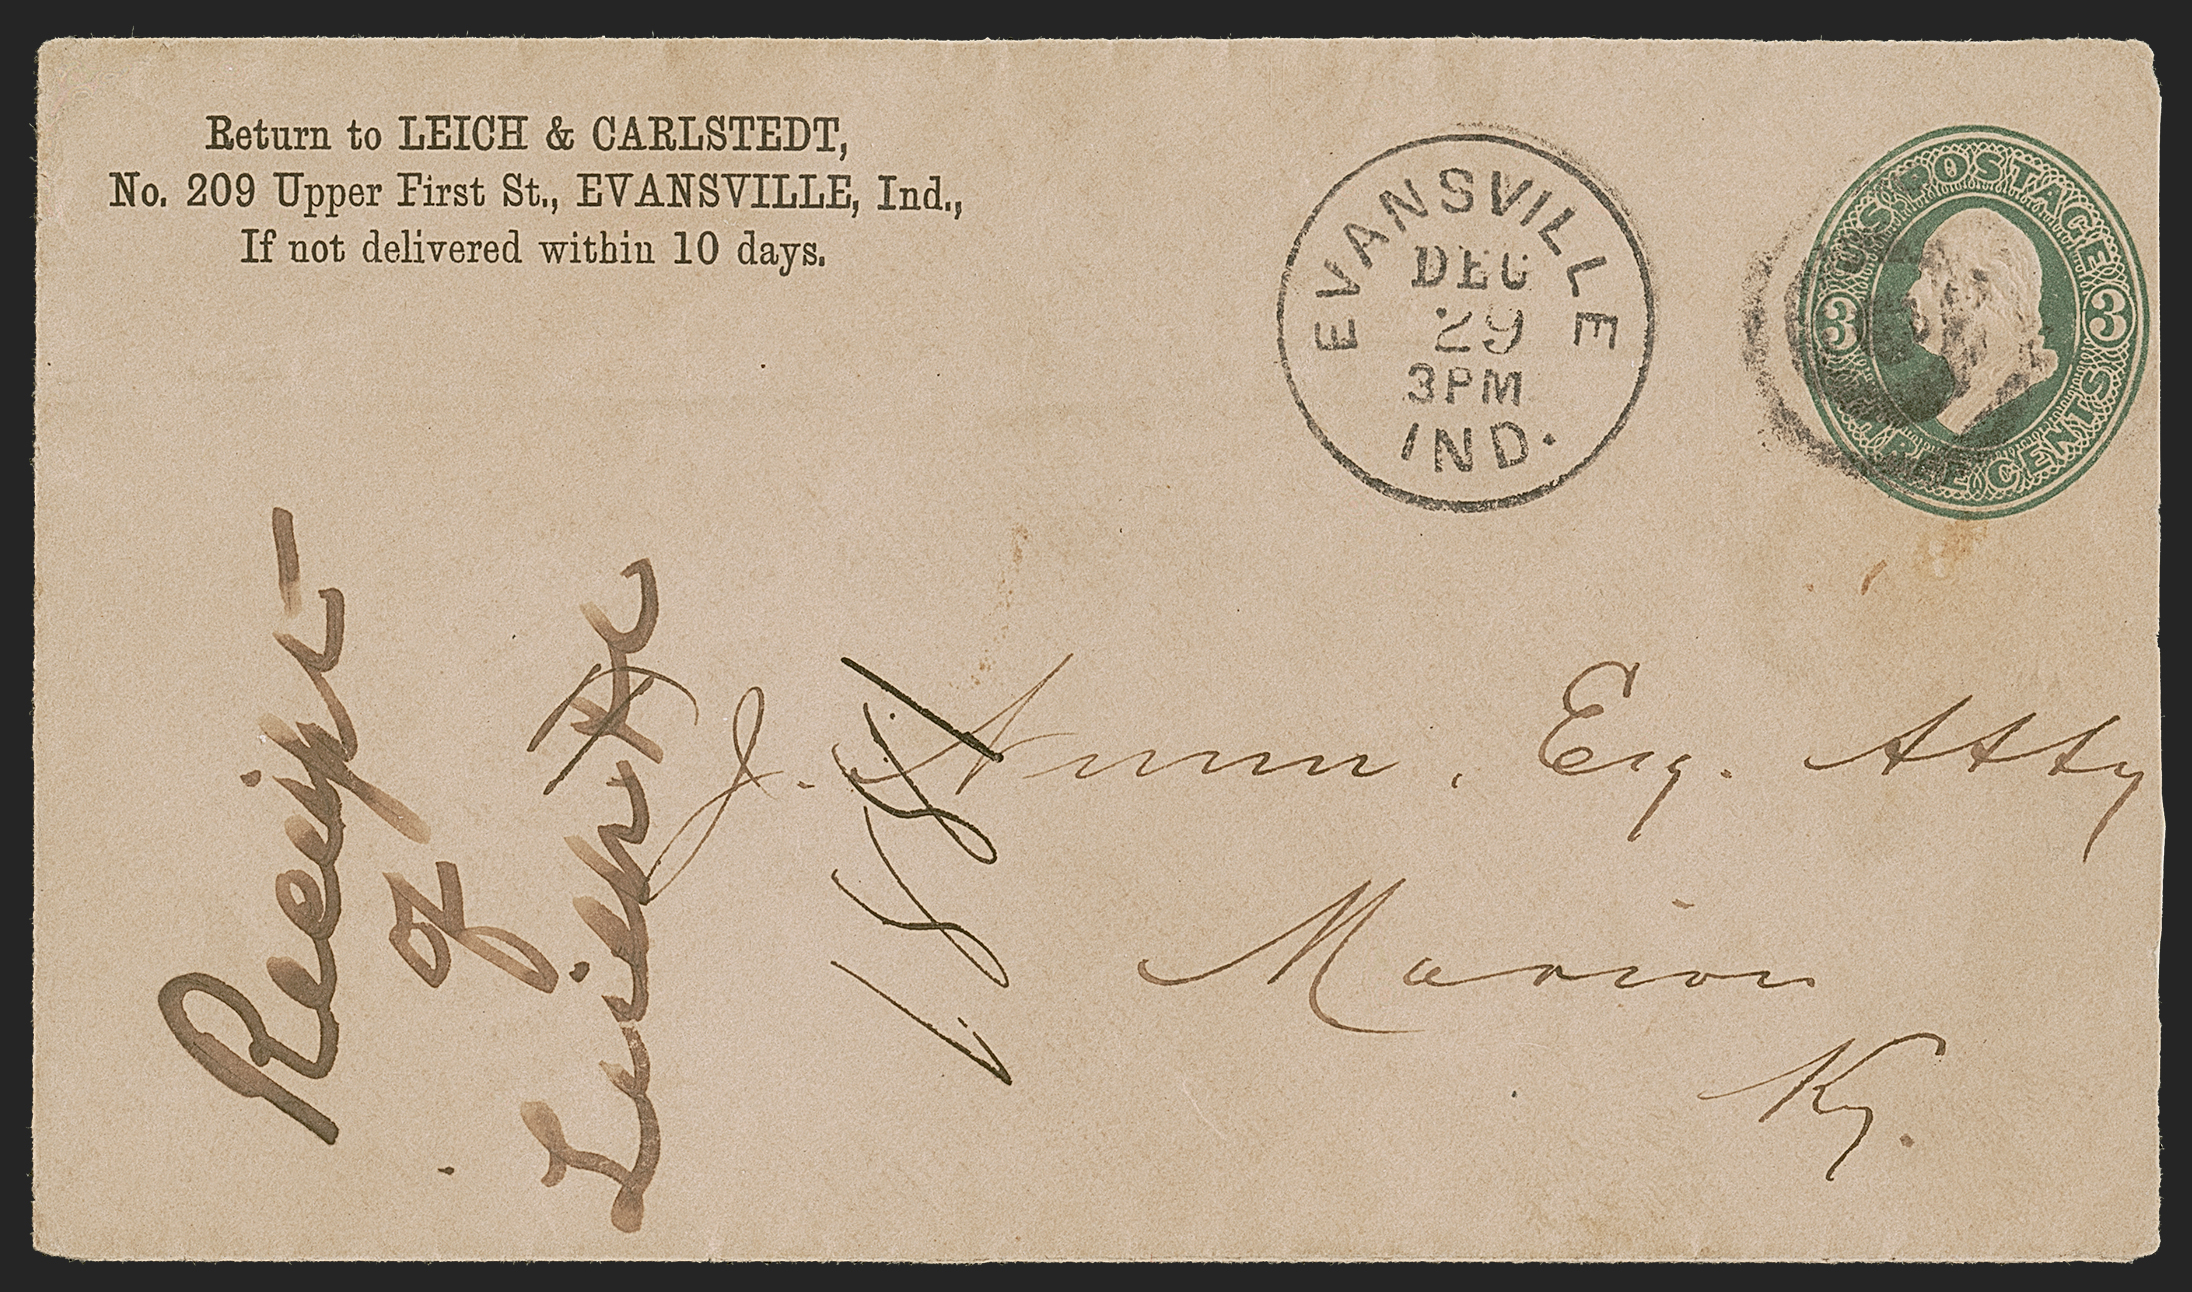 Return to LEICH & CARLSTEDT,
No. 209 Upper First St., EVANSVILLE, Ind.,
If not delivered within 10 days.
EVANSVILLE
DEC
29
3PM
IND.
U.S. POSTAGE
3 3
THREE CENTS
J. Nunn, Esq. Atty
Marion
Ky.
1881
Receipt
of